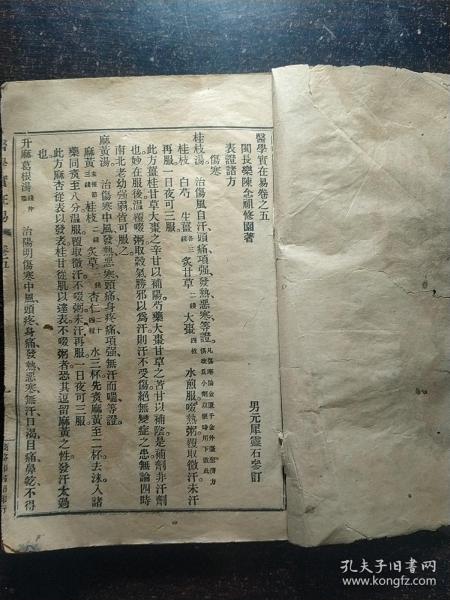 醫學實在易卷之五
閩長樂陳念祖修園著
男元犀靈石參訂
表證諸方
傷寒
桂枝湯 治傷風自汗頭痛項强發熱惡寒等證
桂枝 白芍 生薑各三錢 炙甘草二錢 大棗四枚 水煎服啜熱粥溫覆取微汗未汗
再服一日夜可三服
此方薑桂甘草大棗之辛甘以補陽芍藥大棗甘草之苦甘以補陰是補劑非汗劑
也妙在服後溫覆啜粥取穀氣勝邪以爲汗則汗不受傷絕無變症之患無論四時
南北老幼强弱皆可服之
麻黃湯 治傷寒中風發熱惡寒頭痛身疼痛項强無汗而喘等證
麻黃三錢 桂枝二錢 炙草一錢 杏仁二十四枚 水三杯先煑麻黃至二杯去沫入諸
藥同煑至八分溫服覆取微汗不啜粥未汗再服一日夜可三服
此方麻杏從表以發表桂甘從肌以達表不啜粥者恐其逗留麻黃之性發汗太過
也
升麻葛根湯 治陽明傷寒中風頭疼身痛發熱惡寒無汗口渴目痛鼻乾不得
醫學實在易 卷五
孔夫子旧书网
www.kongfz.com